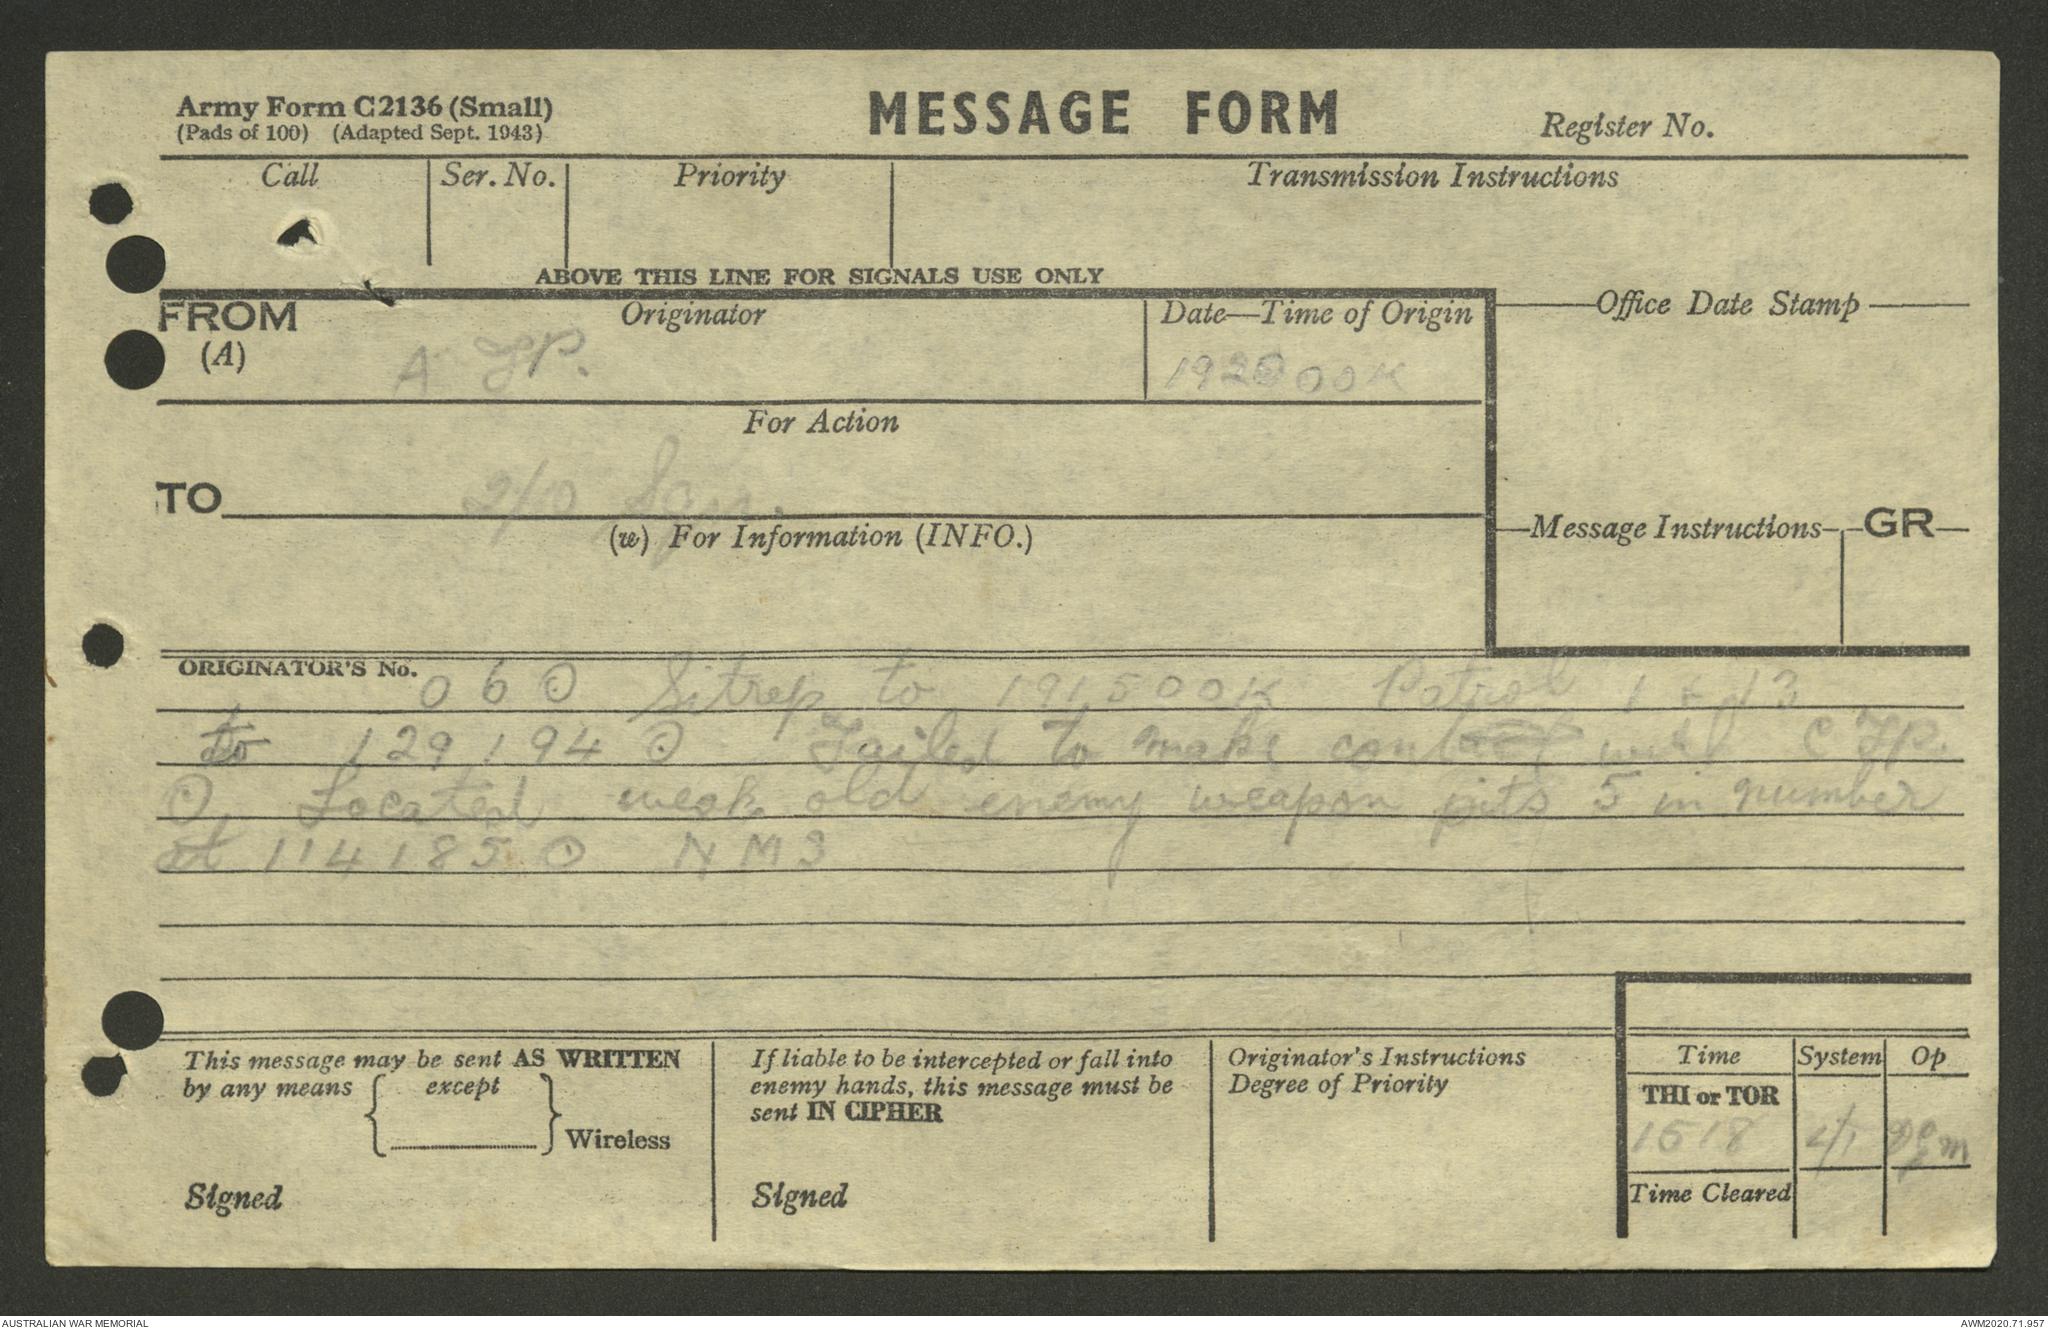 Army Form C2136 (Small)
(Pads of 100) (Adapted Sept. 1943)
MESSAGE FORM
Register No.
Call
Ser. No.
Priority
Transmission Instructions
ABOVE THIS LINE FOR SIGNALS USE ONLY
FROM
(A)
Originator
A TP.
Date—Time of Origin
00K
Office Date Stamp
For Action
TO
2/10
(w) For Information (INFO.)
Message Instructions
GR
ORIGINATOR'S No.
060 Sitrep to 191500K Patrol 1 + 13
to 129194 ⊙ Failed to make contact with C TP.
⊙ Located weak old enemy weapon pits 5 in number
at 114185 ⊙ NM3
This message may be sent AS WRITTEN
by any means { except } Wireless
Signed
If liable to be intercepted or fall into
enemy hands, this message must be
sent IN CIPHER
Signed
Originator's Instructions
Degree of Priority
Time
System
Op
THI or TOR
1518
Time Cleared
AUSTRALIAN WAR MEMORIAL
AWM2020.71.957